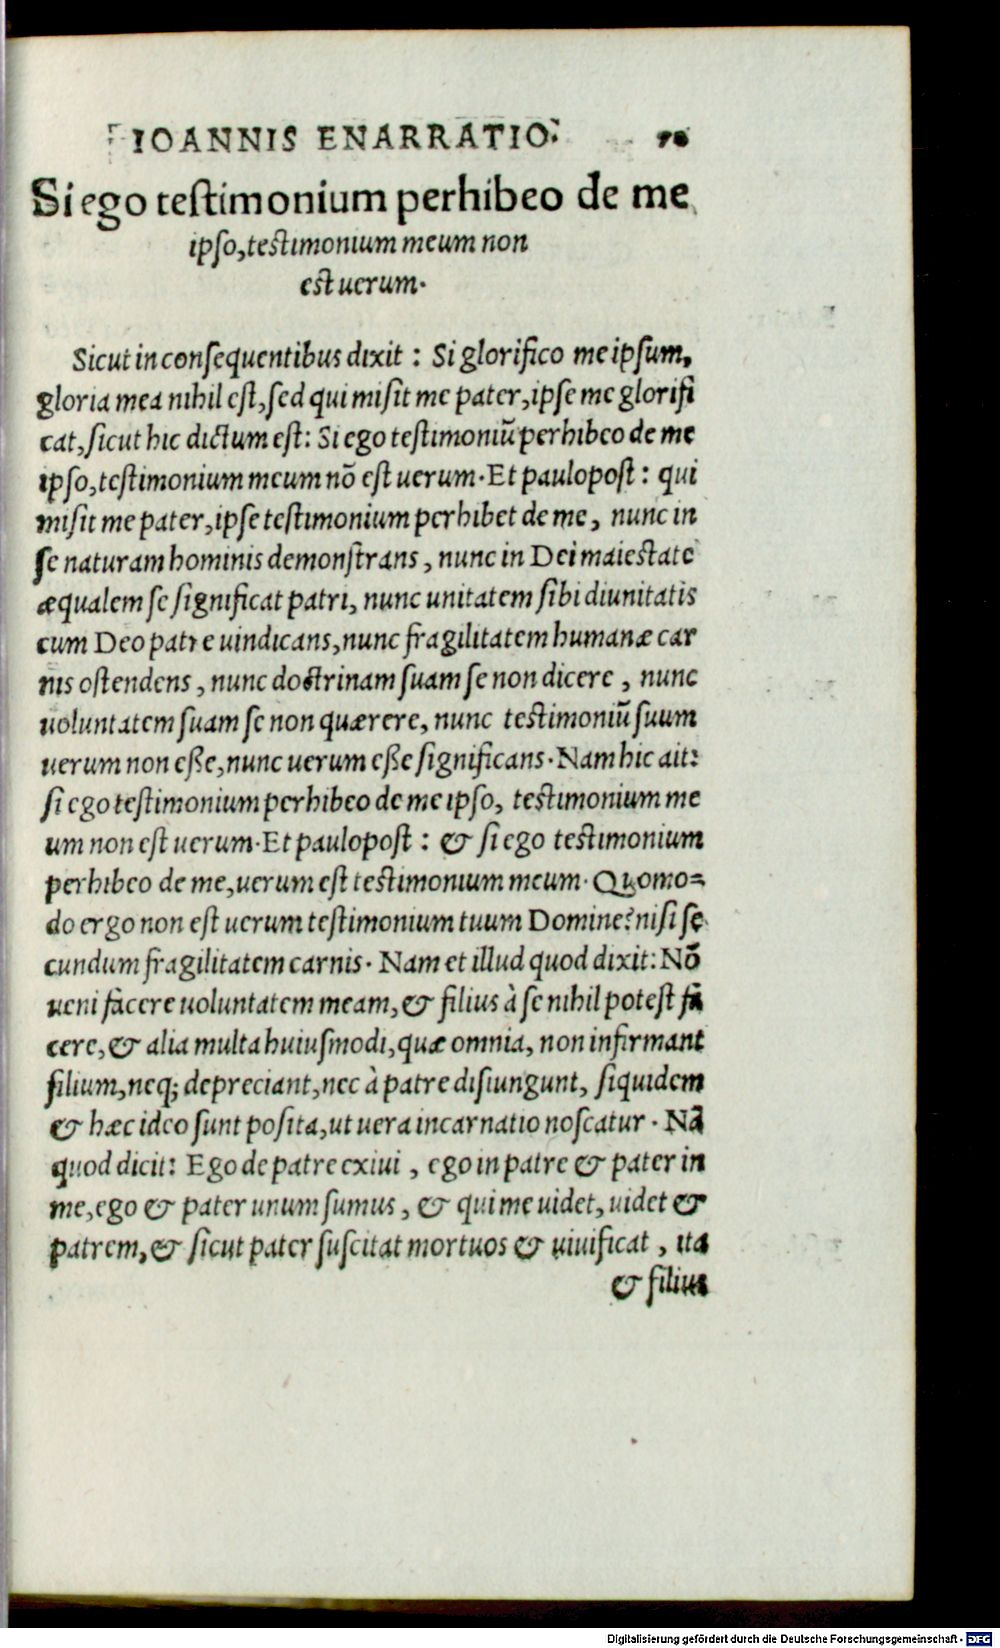 IOANNIS ENARRATIO.
Si ego testimonium perhibeo de me
ipso, testimonium meum non
est uerum.
Sicut in consequentibus dixit : Si glorifico me ipsum,
gloria mea nihil est, sed qui misit me pater, ipse me glorifi
cat, sicut hic dictum est: Si ego testimoniũ perhibeo de me
ipso, testimonium meum nõ est uerum. Et paulopost : qui
misit me pater, ipse testimonium perhibet de me, nunc in
se naturam hominis demonstrans, nunc in Dei maiestate
æqualem se significat patri, nunc unitatem sibi diunitatis
cum Deo patre uindicans, nunc fragilitatem humanæ car
nis ostendens, nunc doctrinam suam se non dicere, nunc
uoluntatem suam se non quærere, nunc testimoniũ suum
uerum non eße, nunc uerum eße significans. Nam hic ait:
si ego testimonium perhibeo de me ipso, testimonium me
um non est uerum. Et paulopost : & si ego testimonium
perhibeo de me, uerum est testimonium meum. Quomo=
do ergo non est uerum testimonium tuum Domine? nisi se
cundum fragilitatem carnis. Nam et illud quod dixit: Nõ
ueni facere uoluntatem meam, & filius à se nihil potest fa
cere, & alia multa huiusmodi, quæ omnia, non infirmant
filium, neq; depreciant, nec à patre disiungunt, siquidem
& hæc ideo sunt posita, ut uera incarnatio noscatur. Nã
quod dicit: Ego de patre exiui, ego in patre & pater in
me, ego & pater unum sumus, & qui me uidet, uidet &
patrem, & sicut pater suscitat mortuos & uiuificat, ita
& filius
Digitalisierung gefördert durch die Deutsche Forschungsgemeinschaft - DFG